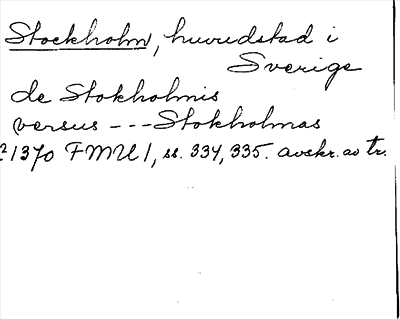 Stockholm, huvudstad i
Sverige
de Stokholmis
versus --- Stokholmas
?1370 FMU I, ss. 334, 335. avskr. av tr.